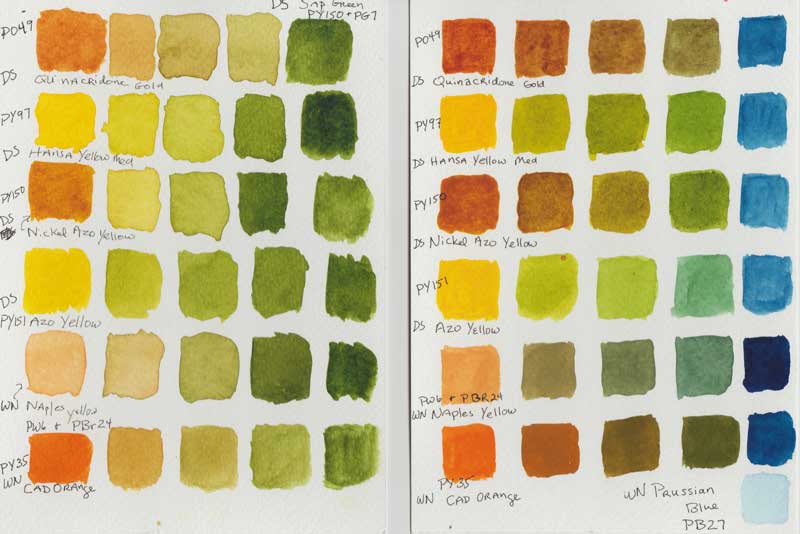 DS Sap Green
PY150 + PG7
PO49
DS Quinacridone Gold
PY97
DS Hansa Yellow Med
PY150
DS
Nickel Azo Yellow
DS
PY151 Azo Yellow
WN Naples yellow
PW6 + PBr24
PY35
WN CAD Orange
PO49
DS Quinacridone Gold
PY97
DS Hansa Yellow Med
PY150
DS Nickel Azo Yellow
PY151
DS Azo Yellow
PW6 + PBR24
WN Naples Yellow
PY35
WN CAD Orange
WN Prussian
Blue
PB27